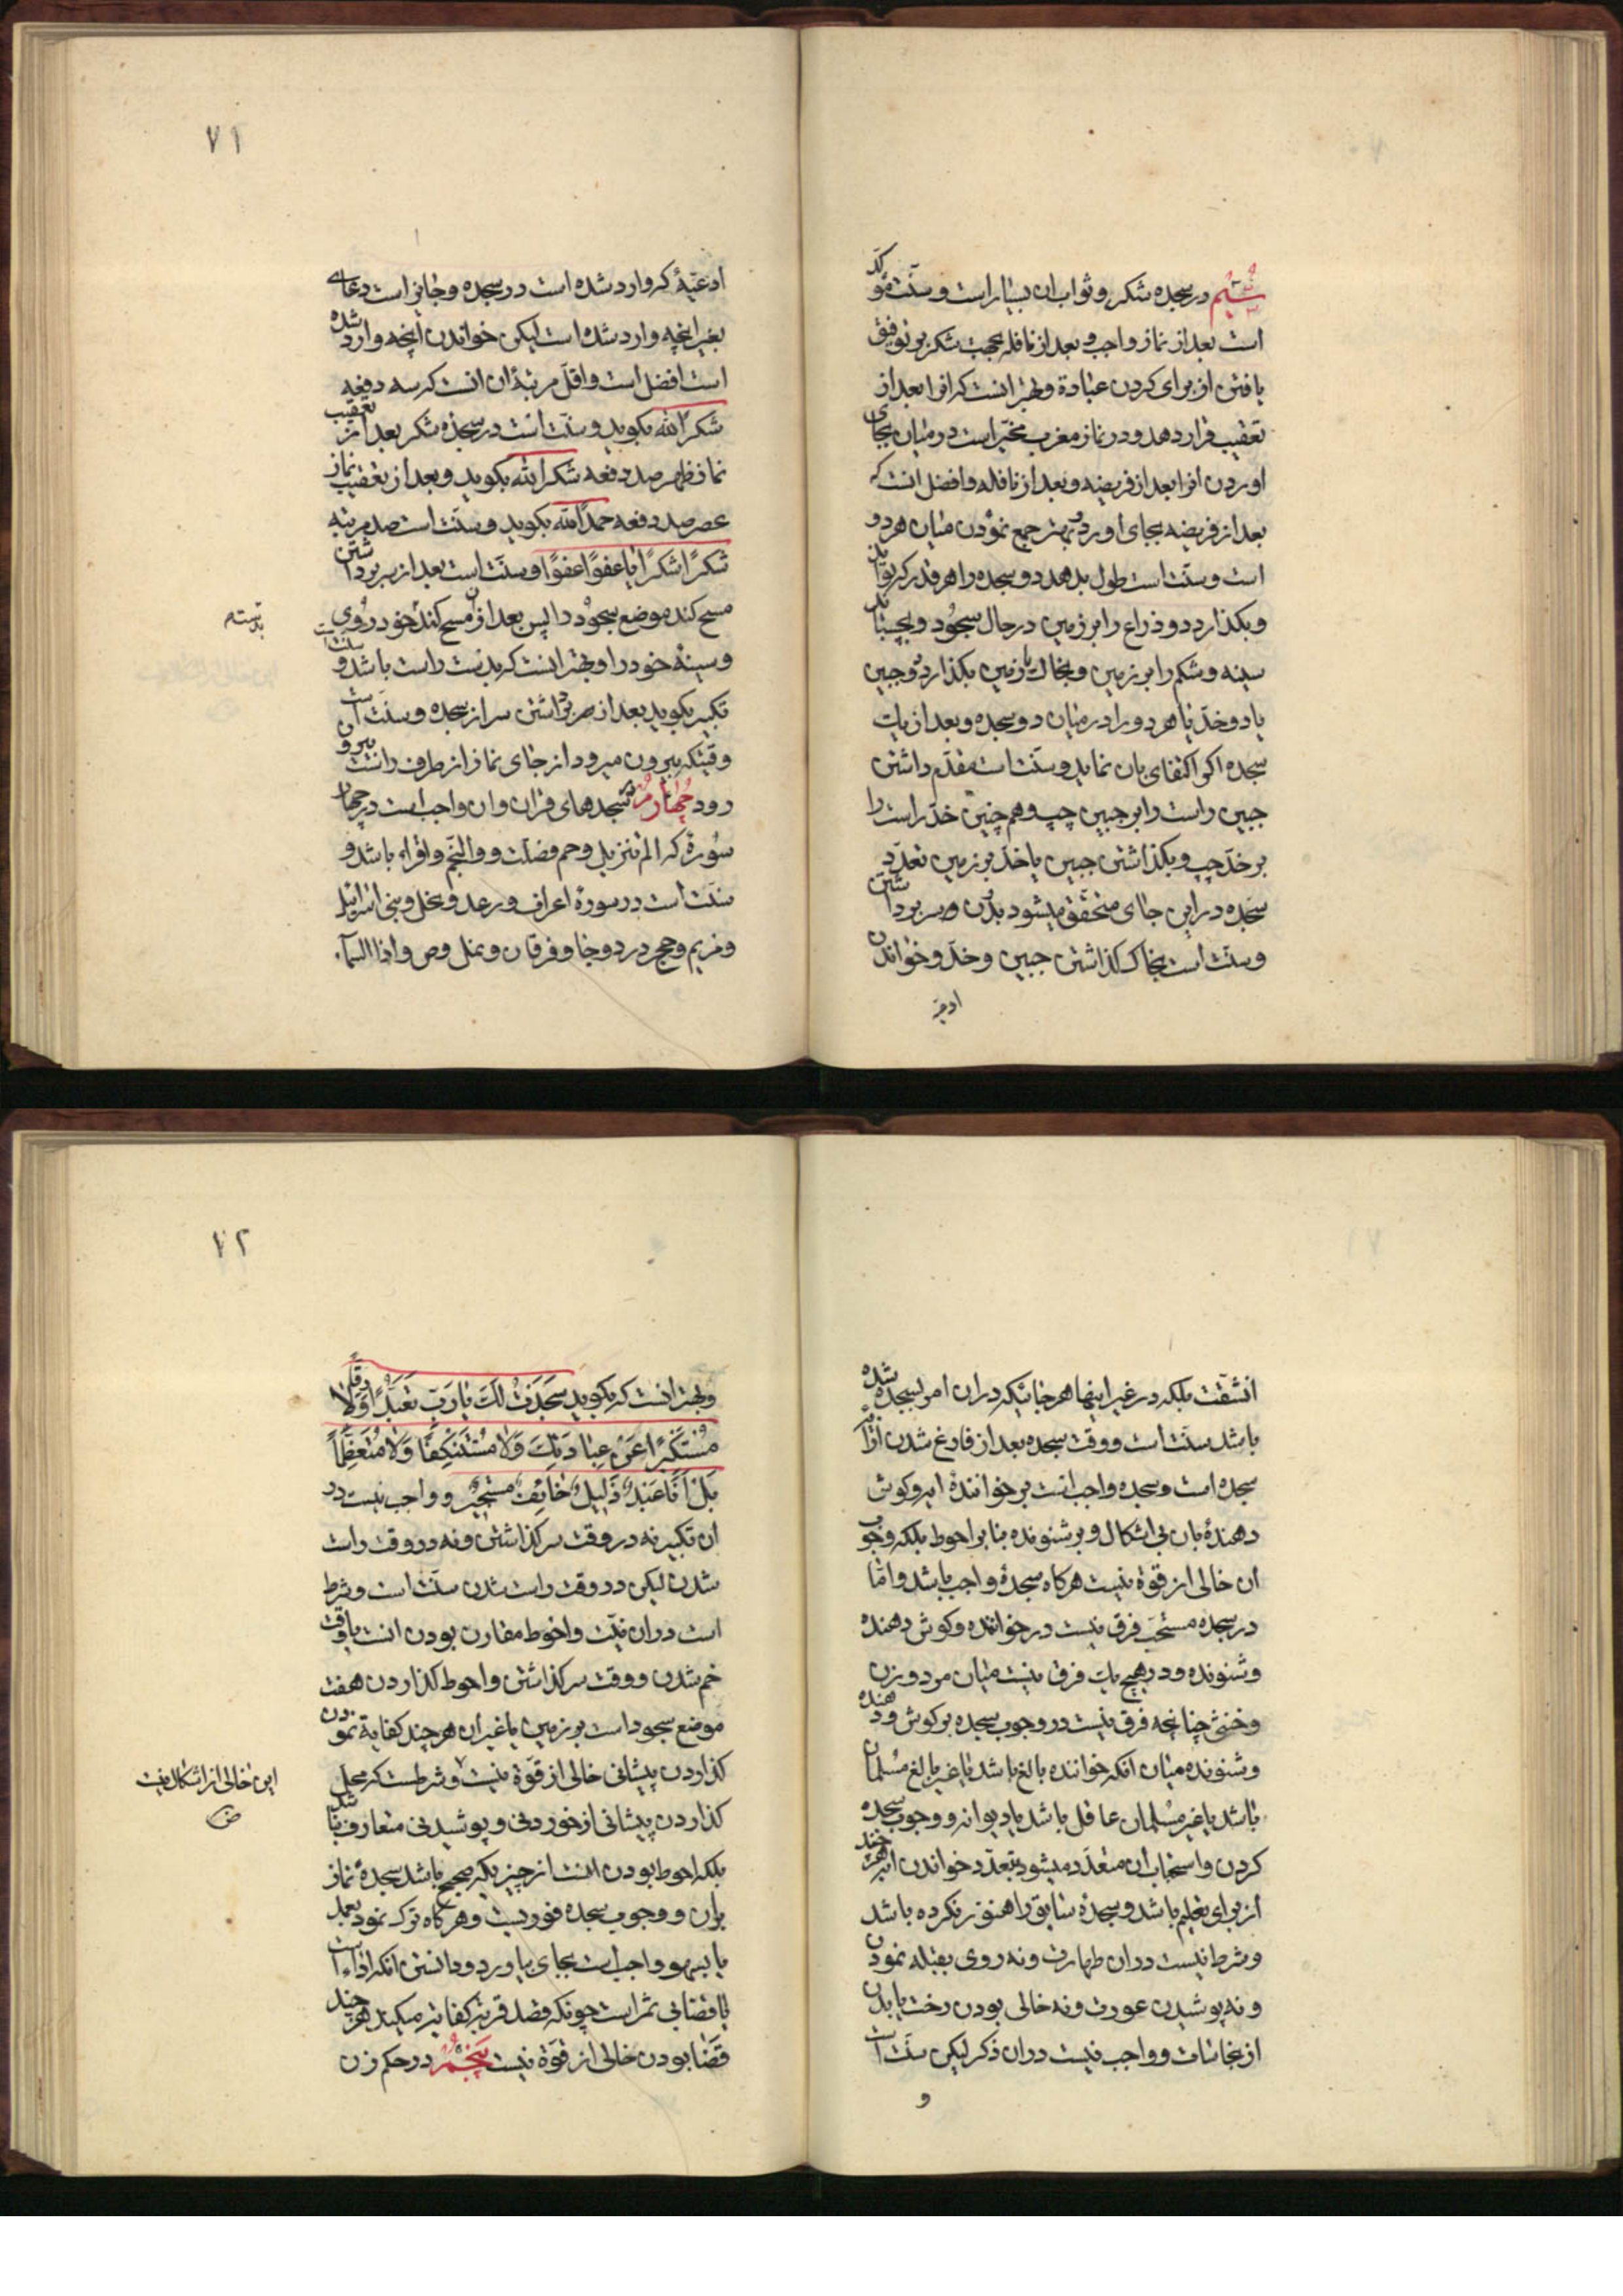 سیم در سجده شکر و ثواب ان بسیار است و سنّت مؤکّد
است بعد از نماز واجب و بعد از نافله بجهت شکر بر توفیق
یافتن از برای کردن عبادة و بهتر انست که انرا بعد از
تعقیب قرار دهد و در نماز مغرب مخیّر است در میان بجای
اوردن انرا بعد از فریضه و بعد از نافله و افضل انست که
بعد از فریضه بجای اورد و بهتر جمع نمودن میان هر دو
است و سنّت است طول بدهد دو سجده را هر قدر که تواند
و بکذارد دو ذراع را بر زمین در حال سجود و بچسباند
سینه و شکم را بر زمین و بخاک یا زمین بکذارد دو جبین
یا دو خدّ یا هر دو را در میان دو سجده و بعد از یک
سجده اکر اکتفای بان نماید و سنّت است مقدّم داشتن
جبین راست را بر جبین چپ و هم چنین خدّ راست را
بر خدّ چپ و بکذاشتن جبین یا خدّ بر زمین تعدّد
سجده در این جای متحقّق میشود بدون سر برداشتن
و سنّت است بخاک کذاشتن جبین و خدّ و خواندن
ادعیه
۷۱
ادعیهٔ که وارد شده است در سجده و جایز است دعای
بغیر انچه وارد شده است لیکن خواندن انچه وارد شده
است افضل است و اقلّ مرتبهٔ ان انست که سه دفعه
شکرًا للّه بکوید و سنّت است در سجدهٔ شکر بعد از تعقیب
نماز ظهر صد دفعه شکرًا للّه بکوید و بعد از تعقیب نماز
عصر صد دفعه حمدًا للّه بکوید و سنّت است صد مرتبه
شکرًا شکرًا یا عفوًا عفوًا و سنّت است بعد از سر برداشتن
مسح کند موضع سجود را پس بعد از ان مسح کند خود روی
و سینهٔ خود را و بهتر انست که بدست راست باشد و سنّت است
تکبیر بکوید بعد از سر برداشتن سر از سجده و سنّت است
وقتیکه بیرون میرود از جای نماز از طرف راست بیرون
رود چهارم سجدهای قران و ان واجب است در چهار
سورة که الم تنزیل و حم فصّلت و والنّجم و اقراء باشد و
سنّت است در سورهٔ اعراف و رعد و نحل و بنی اسرائیل
و مریم و حج در دو جا و فرقان و نمل و ص و اذا السّمآء
بدسته
انشقّت بلکه در غیر اینها هر جائیکه در ان امر بسجده شده
باشد سنّت است و وقت سجده بعد از فارغ شدن از ایهٔ
سجده است و سجده واجب است بر خوانندهٔ ایه و کوش
دهندهٔ بان بی اشکال و بر شنونده بنابر احوط بلکه وجوب
ان خالی از قوّة نیست هرکاه سجدهٔ واجب باشد و امّا
در سجده مستحب فرق نیست در خواننده و کوش دهنده
و شنونده و در هیچ یک فرق نیست میان مرد و زن
و خنثی چنانچه فرق نیست در وجوب سجده بر کوش دهنده
و شنونده میان انکه خواننده بالغ باشد یا غیر بالغ مسلمان
باشد یا غیر مسلمان عاقل باشد یا دیوانه و وجوب سجده
کردن و استحباب ان متعدّد میشود بتعدّد خواندن ایه هر چند
از برای تعلیم باشد و سجدهٔ سابق را هنوز نکرده باشد
و شرط نیست در ان طهارت و نه روی بقبله نمودن
و نه پوشیدن عورت و نه خالی بودن رخت یا بدن
از نجاسات و واجب نیست در ان ذکر لیکن سنّت است
و
۷۲
و بهتر انست که بکوید سَجَدْتُ لَكَ یا رَبِّ تَعَبُّدًا وَرِقًّا لا
مُسْتَکْبِرًا عَنْ عِبادَتِكَ وَلا مُسْتَنْکِفًا وَلا مُتَعَظِّمًا
بَلْ اَنَا عَبْدٌ ذَلیلٌ خائِفٌ مُسْتَجیرٌ و واجب نیست در
ان تکبیر نه در وقت سر کذاشتن و نه در وقت راست
شدن لیکن در وقت راست شدن سنّت است و شرط
است در ان نیّت و احوط مقارن بودن انست با وقت
خم شدن و وقت سر کذاشتن و احوط کذاردن هفت
موضع سجود است بر زمین یا غیر ان هر چند کفایة نمودن
کذاردن پیشانی خالی از قوّة نیست و شرطست که محل
کذاردن پیشانی از خوردنی و پوشیدنی متعارف نباشد
بلکه احوط بودن انست از چیزیکه صحیح باشد سجدهٔ نماز
بران و وجوب سجده فوریست و هرکاه ترک نمود بعمد
یا بسهو واجب است بجای بیاورد و دانستن انکه اداء است
یا قضا بی ثمر است چونکه قصد قربة کفایة میکند هر چند
قضا بودن خالی از قوّة نیست پنجم در حکم زن
این خالی از اشکال نیست